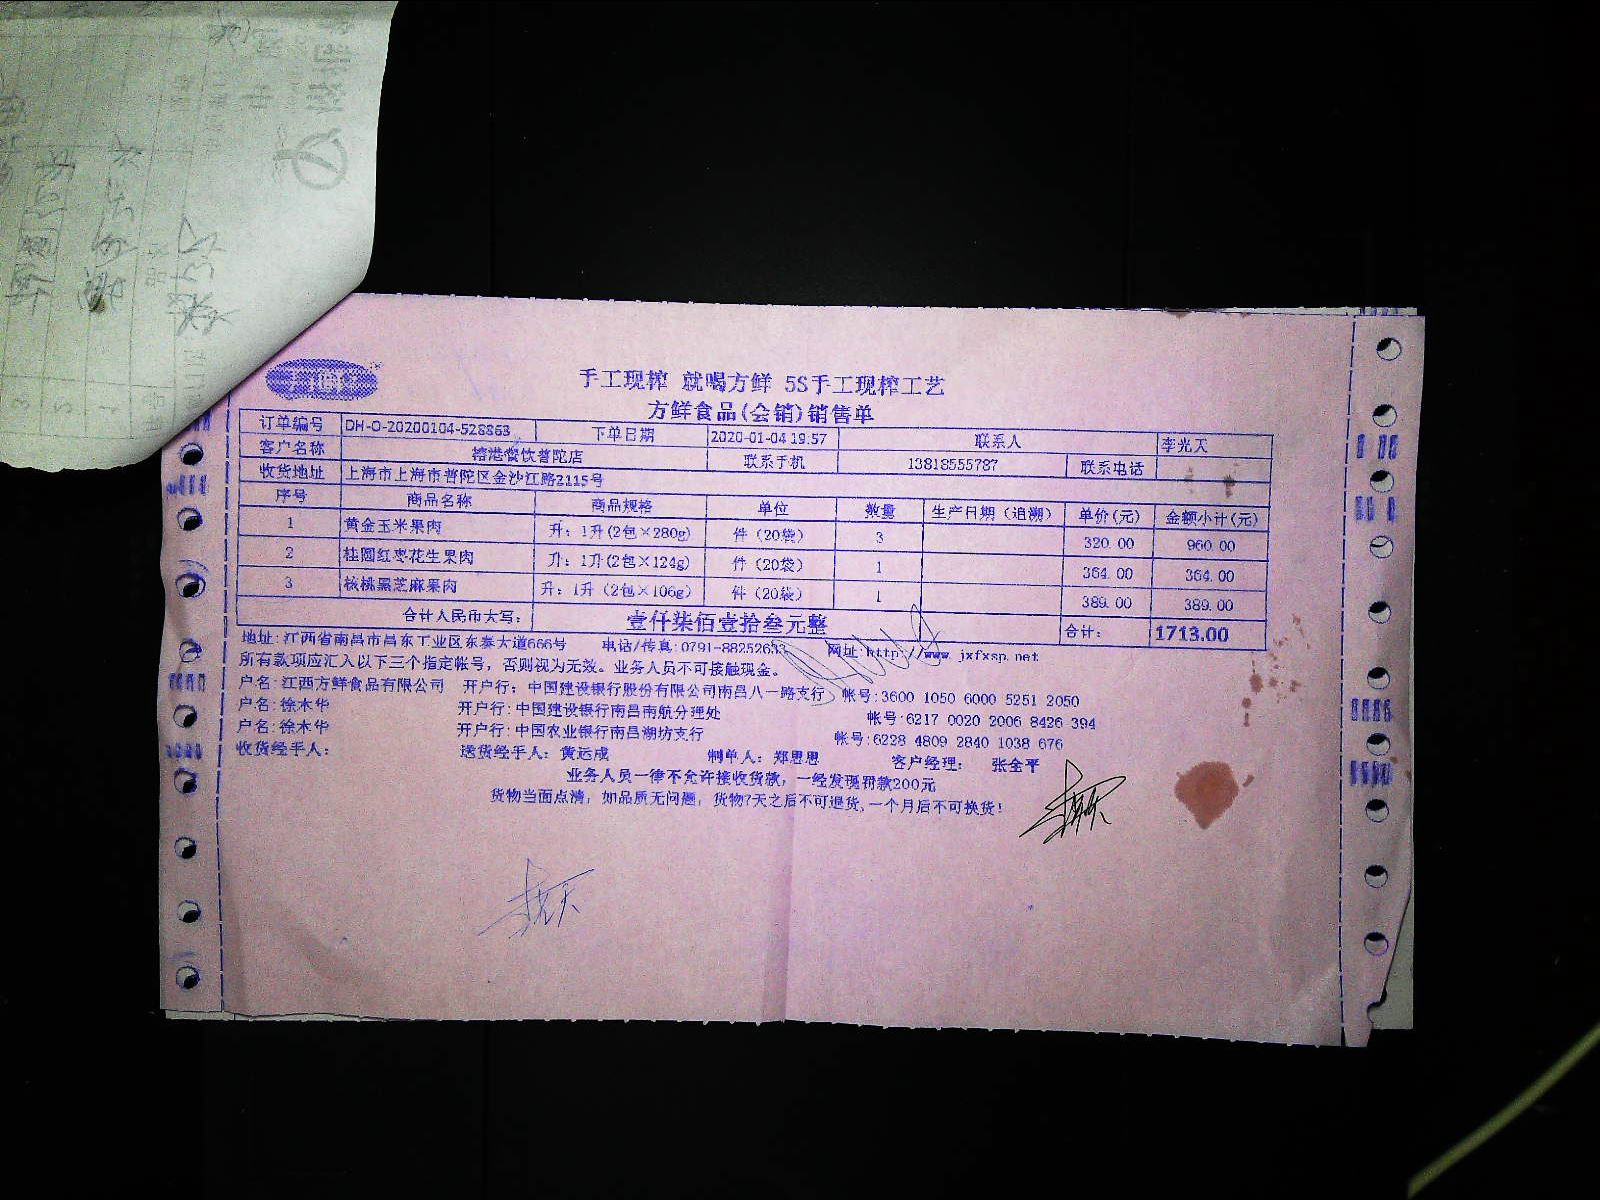 手工现榨 就喝方鲜 5S手工现榨工艺
方鲜食品(会销)销售单
订单编号 DH-O-20200104-528863 下单日期 2020-01-04 19:57 联系人 李光天
客户名称 榕港餐饮普陀店 联系手机 13818555787 联系电话
收货地址 上海市上海市普陀区金沙江路2115号
序号 商品名称 商品规格 单位 数量 生产日期（追溯） 单价(元) 金额小计(元)
1 黄金玉米果肉 升：1升(2包×280g) 件（20袋） 3 320.00 960.00
2 桂圆红枣花生果肉 升：1升(2包×124g) 件（20袋） 1 364.00 364.00
3 核桃黑芝麻果肉 升：1升（2包×106g） 件（20袋） 1 389.00 389.00
合计人民币大写： 壹仟柒佰壹拾叁元整 合计： 1713.00
地址:江西省南昌市昌东工业区东泰大道666号 电话/传真:0791-88252633 网址:http://www.jxfxsp.net
所有款项应汇入以下三个指定帐号，否则视为无效。业务人员不可接触现金。
户名:江西方鲜食品有限公司 开户行：中国建设银行股份有限公司南昌八一路支行 帐号:3600 1050 6000 5251 2050
户名:徐木华 开户行:中国建设银行南昌南航分理处 帐号:6217 0020 2006 8426 394
户名:徐木华 开户行:中国农业银行南昌湖坊支行 帐号:6228 4809 2840 1038 676
收货经手人： 送货经手人：黄运成 制单人：郑思恩 客户经理： 张全平
业务人员一律不允许接收货款，一经发现罚款200元
货物当面点清，如品质无问题，货物7天之后不可退货,一个月后不可换货！